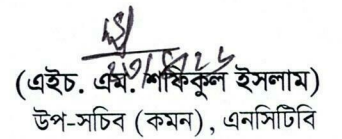 (এইচ. এম. শফিকুল ইসলাম)
উপ-সচিব (কমন), এনসিটিবি